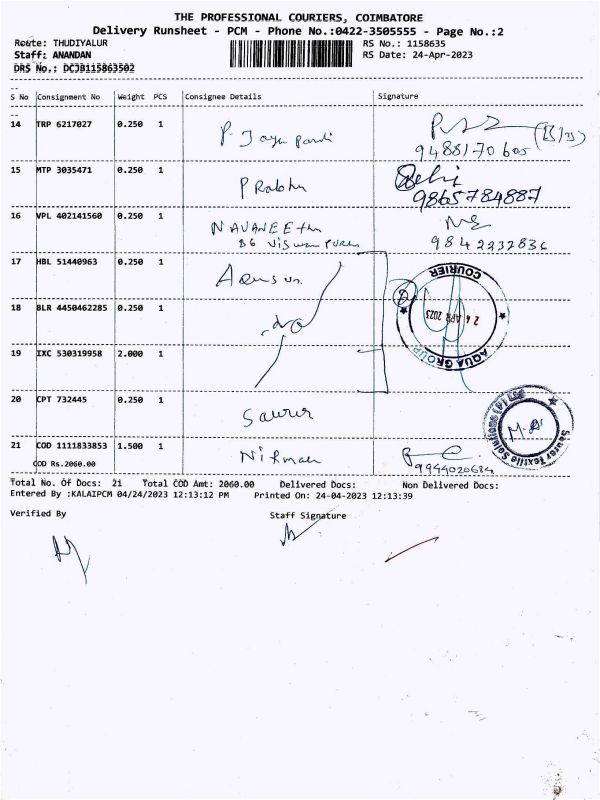 THE PROFESSIONAL COURIERS, COIMBATORE
Delivery Runsheet - PCM - Phone No.:0422-3505555 - Page No.:2
Route: THUDIYALUR
RS No.: 1158635
Staff: ANANDAN
RS Date: 24-Apr-2023
DRS No.: DCJB115863502
S No Consignment No Weight PCS Consignee Details Signature
14 TRP 6217027 0.250 1 P. Jaya
(B/B)
9488170605
15 MTP 3035471 0.250 1 Prabhu
9865784887
16 VPL 402141560 0.250 1 NAVANEETH
9842232836
17 HBL 51440963 0.250 1
18 BLR 4450462285 0.250 1 -do-
2
COURIER
24 APR 2023
AQUA GROUP
19 IXC 530319958 2.000 1
20 CPT 732445 0.250 1 Saurer
Saurer Textile Solutions (P) Ltd
21 COD 1111833853 1.500 1 Nirmal
COD Rs.2060.00
9944020684
Total No. Of Docs: 21 Total COD Amt: 2060.00 Delivered Docs: Non Delivered Docs:
Entered By :KALAIPCM 04/24/2023 12:13:12 PM Printed On: 24-04-2023 12:13:39
Verified By Staff Signature